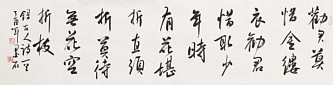 勸君莫
惜金縷
衣勸君
惜取少
年時
有花堪
折直須
折莫待
無花空
折枝